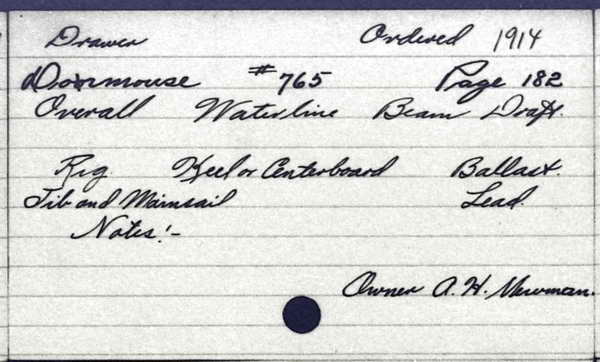 Drawer Ordered 1914
Dormouse #765 Page 182
Overall Waterline Beam Draft.
Rig Keel or Centerboard Ballast.
Jib and Mainsail Lead.
Notes:-
Owner A. H. Newman.